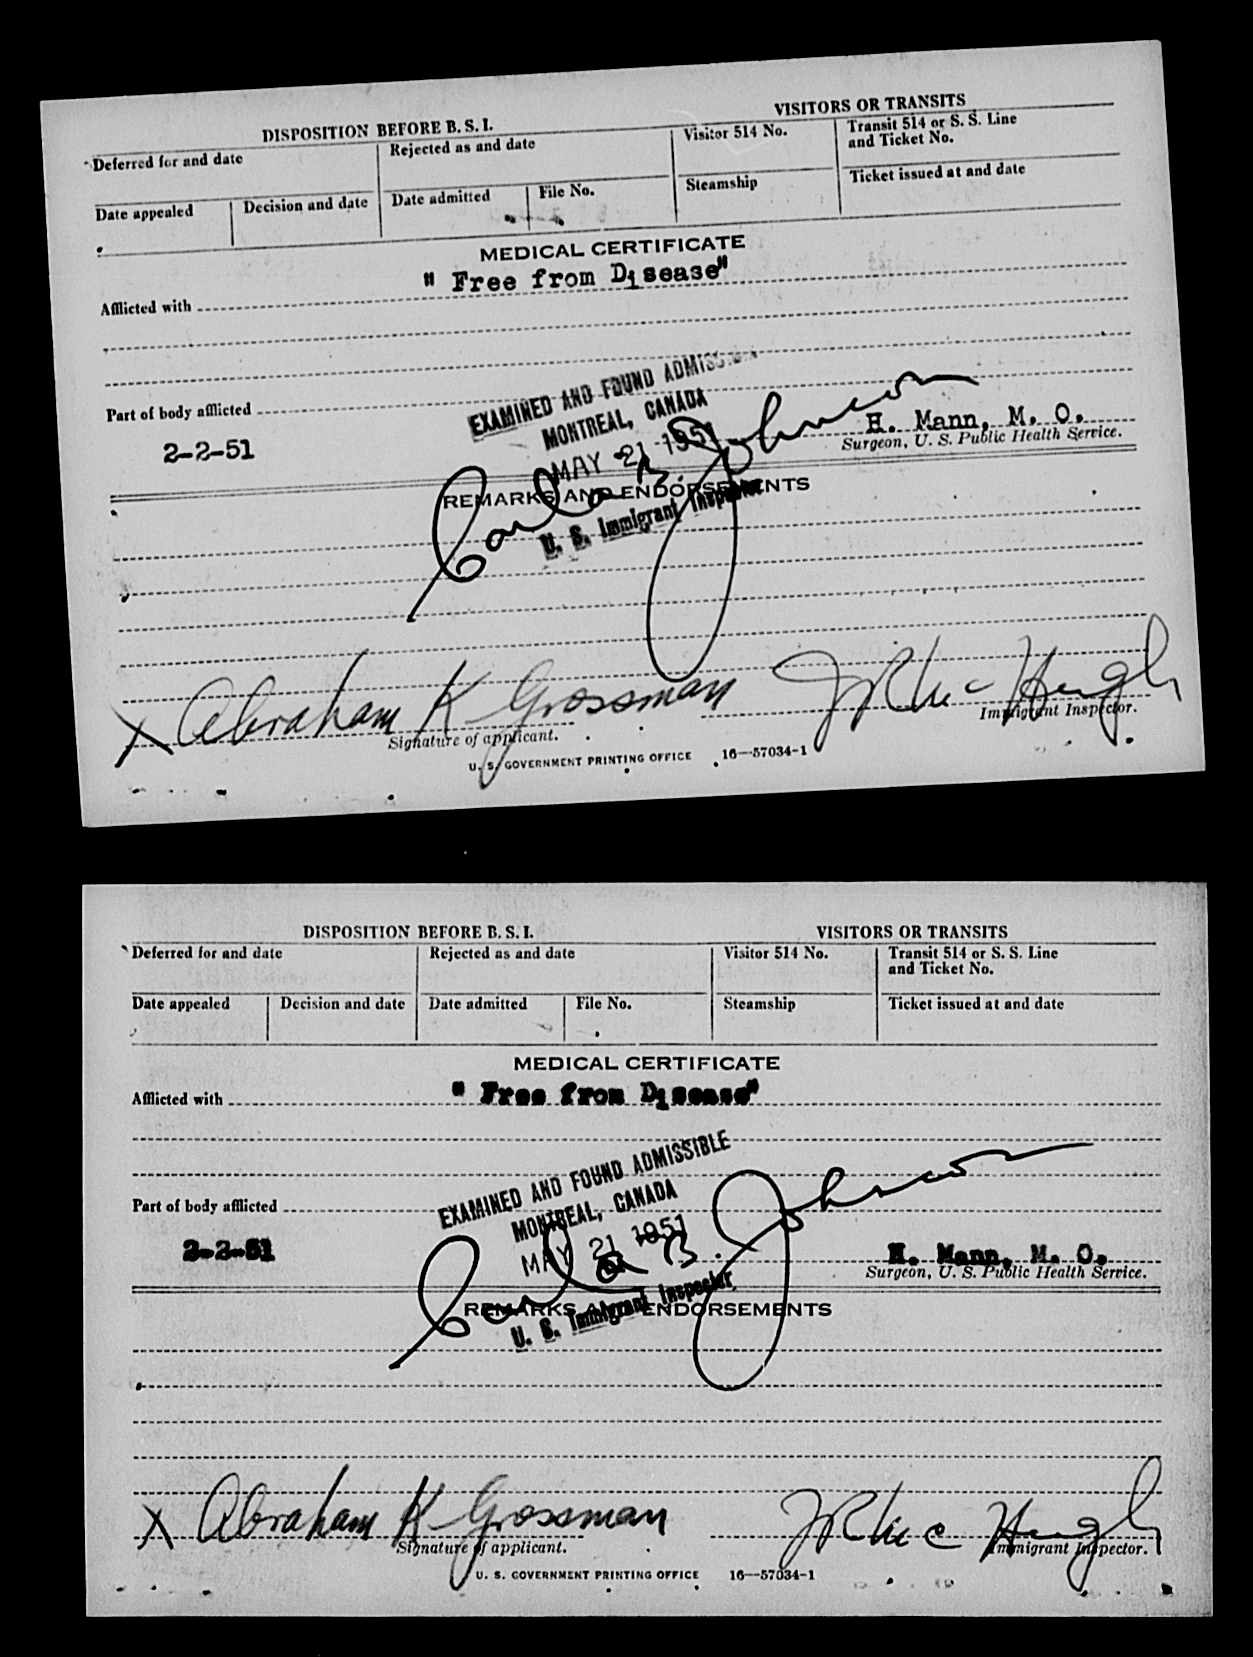 DISPOSITION BEFORE B. S. I.
VISITORS OR TRANSITS
Deferred for and date
Rejected as and date
Visitor 514 No.
Transit 514 or S. S. Line
and Ticket No.
Date appealed
Decision and date
Date admitted
File No.
Steamship
Ticket issued at and date
MEDICAL CERTIFICATE
Afflicted with " Free from Disease"
Part of body afflicted
EXAMINED AND FOUND ADMISSIBLE
MONTREAL, CANADA
MAY 21 1951
Carl B. Johnson
U. S. Immigrant Inspector
2-2-51
H. Mann, M. O.
Surgeon, U. S. Public Health Service.
REMARKS AND ENDORSEMENTS
X Abraham K Grossman
Signature of applicant.
Immigrant Inspector.
U. S. GOVERNMENT PRINTING OFFICE 16—57034-1
DISPOSITION BEFORE B. S. I.
VISITORS OR TRANSITS
Deferred for and date
Rejected as and date
Visitor 514 No.
Transit 514 or S. S. Line
and Ticket No.
Date appealed
Decision and date
Date admitted
File No.
Steamship
Ticket issued at and date
MEDICAL CERTIFICATE
Afflicted with " Free from Disease"
Part of body afflicted
EXAMINED AND FOUND ADMISSIBLE
MONTREAL, CANADA
MAY 21 1951
Carl B. Johnson
U. S. Immigrant Inspector
2-2-51
H. Mann, M. O.
Surgeon, U. S. Public Health Service.
REMARKS AND ENDORSEMENTS
X Abraham K Grossman
Signature of applicant.
Immigrant Inspector.
U. S. GOVERNMENT PRINTING OFFICE 16—57034-1